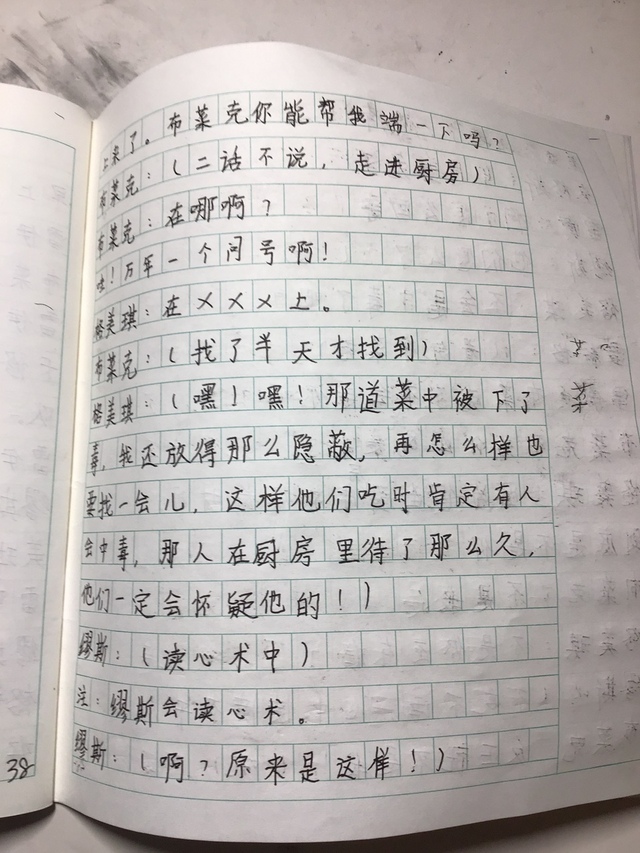 上来了。布莱克你能帮我端一下吗?
布莱克:(二话不说,走进厨房)
布莱克:在哪啊?
哇!万年一个问号啊!
格美琪:在×××上。
布莱克:(找了半天才找到)
格美琪:(嘿!嘿!那道菜中被下了
毒,我还放得那么隐蔽,再怎么样也
要找一会儿,这样他们吃时肯定有人
会中毒,那人在厨房里待了那么久,
他们一定会怀疑他的!)
缪斯:(读心术中)
注:缪斯会读心术。
缪斯:(啊?原来是这样!)
38